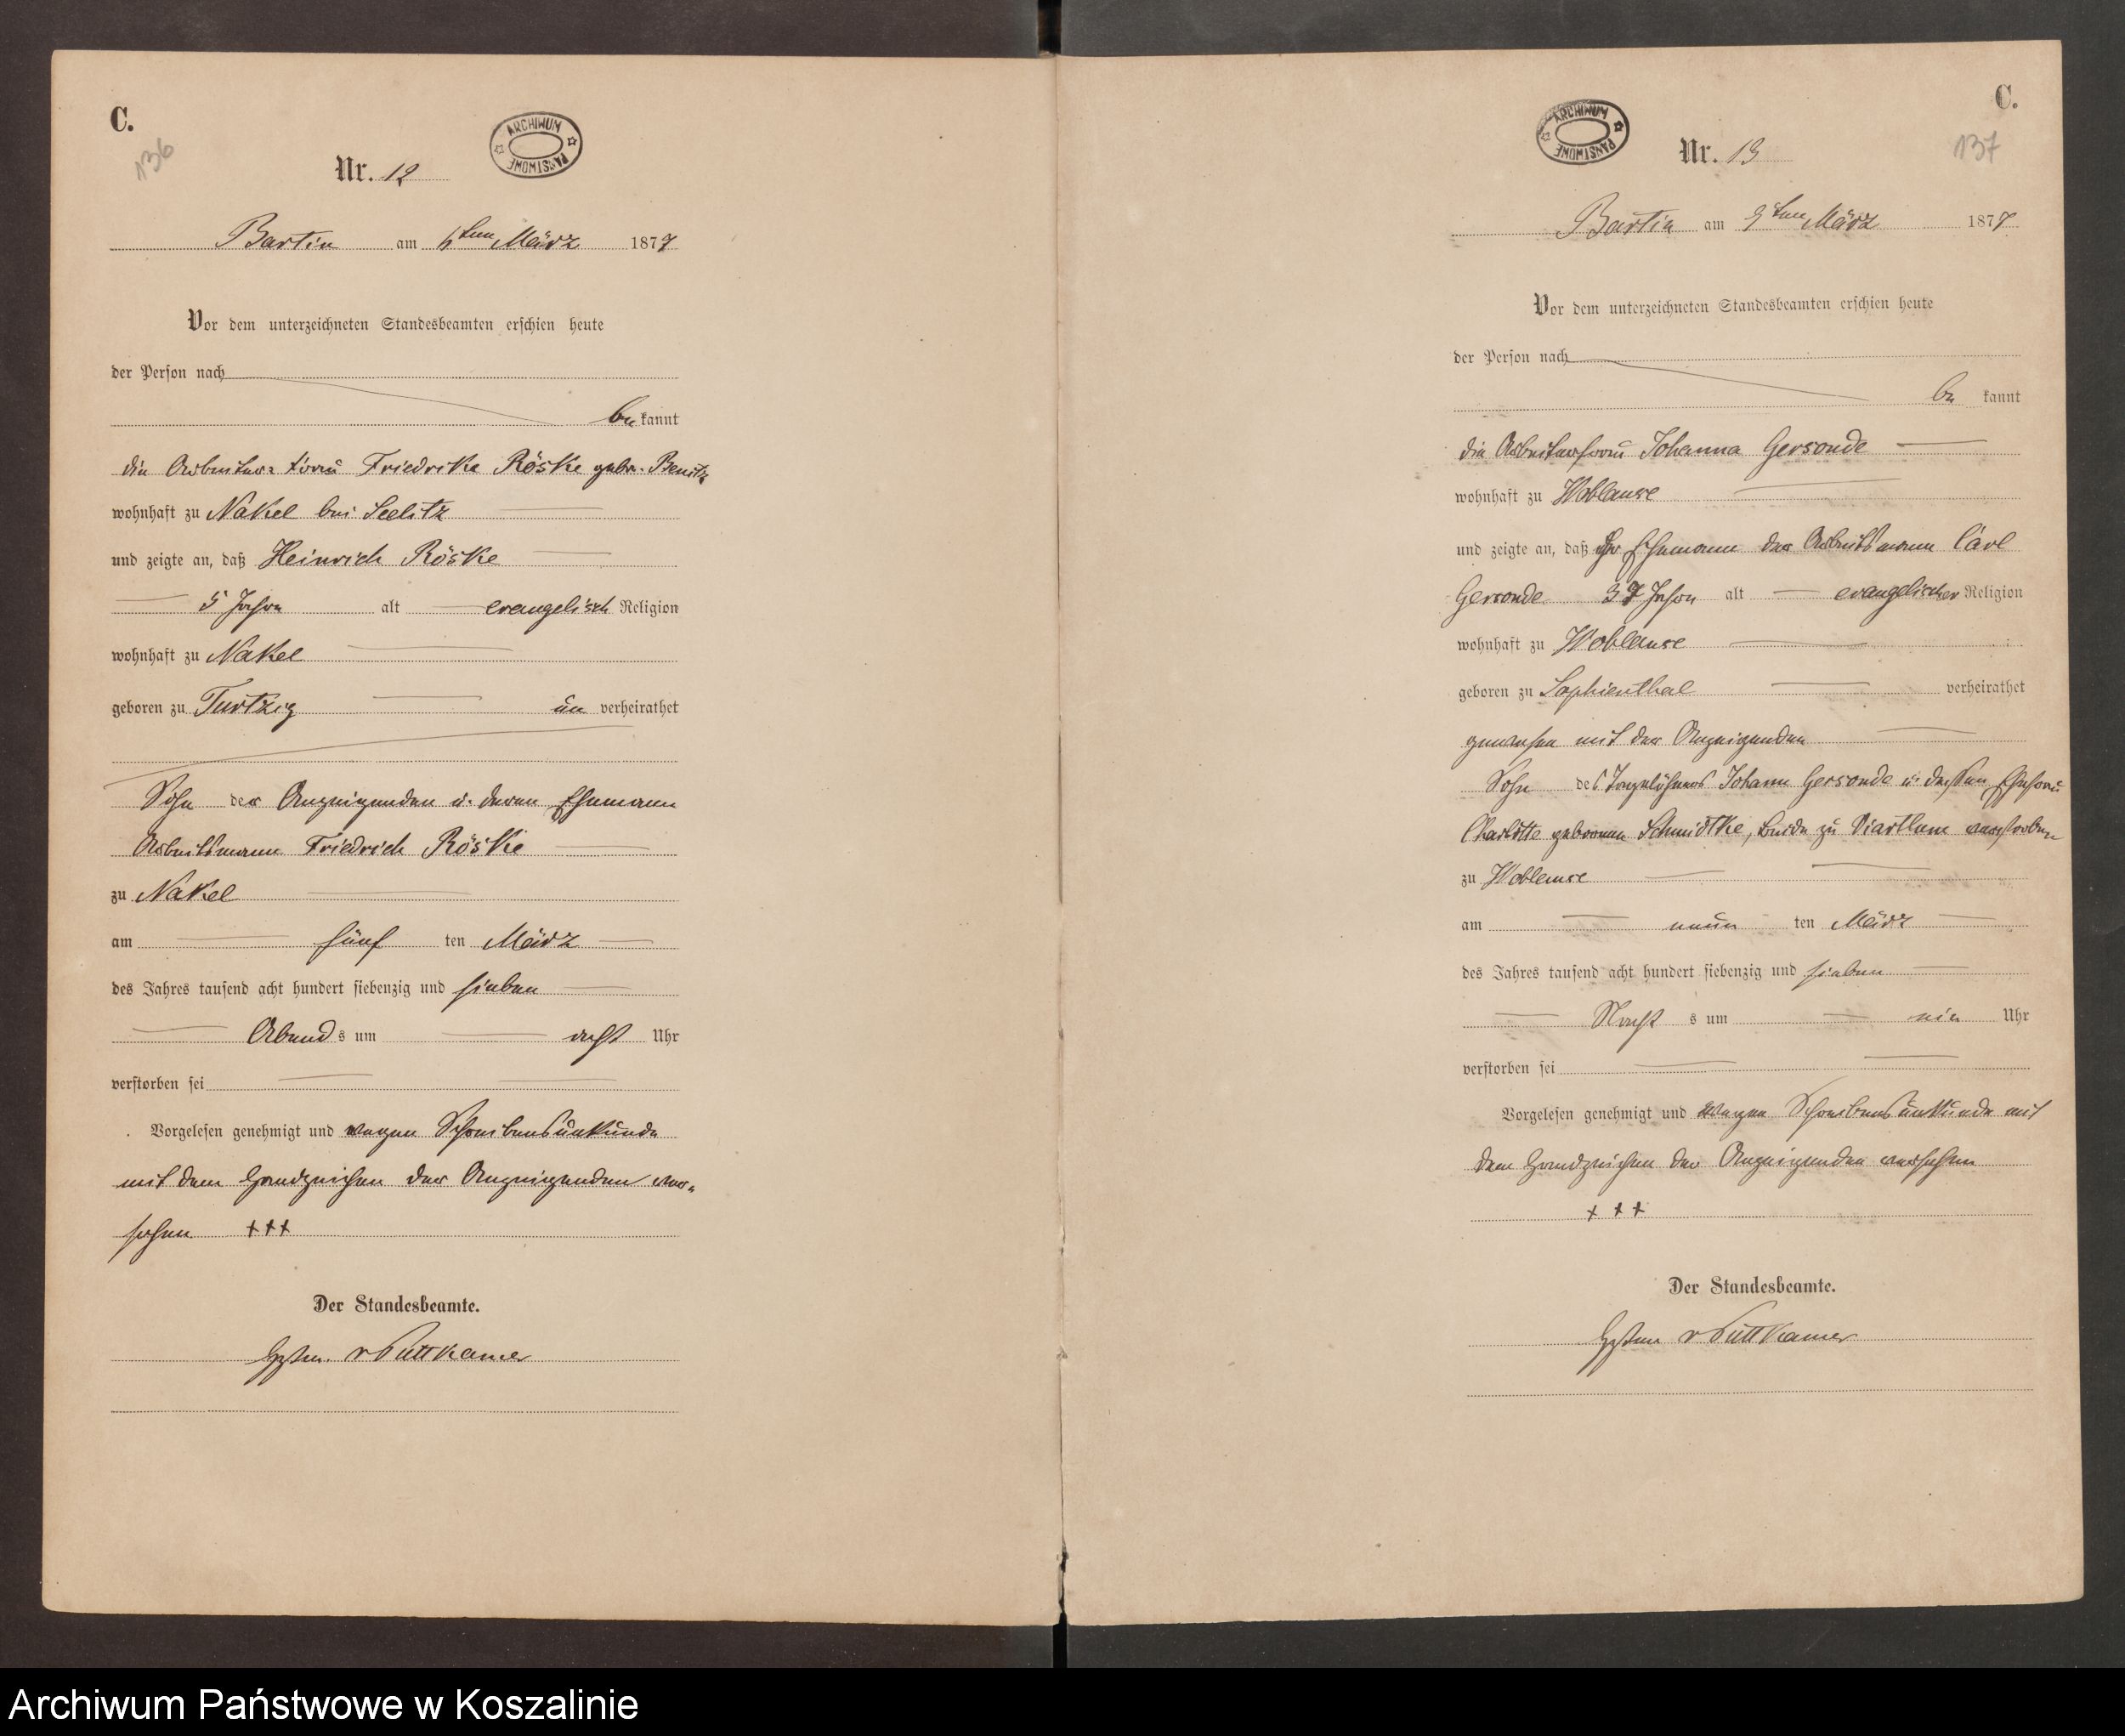 C.
136
ARCHIWUM PAŃSTWOWE
Nr. 12
Bartin am 6ten März 1877
Vor dem unterzeichneten Standesbeamten erschien heute
der Person nach
be kannt
die Arbeiter-frau Friedrike Röske gebr. Benitz
wohnhaft zu Nakel bei Seelitz
und zeigte an, daß Heinrich Röske
5 Jahre alt evangelisch Religion
wohnhaft zu Nakel
geboren zu Turtzig un verheirathet
Sohn der Anzeigenden u. deren Ehemann
Arbeitsmann Friedrich Röske
zu Nakel
am fünf ten März
des Jahres tausend acht hundert siebenzig und sieben
Abend s um acht Uhr
verstorben sei
Vorgelesen genehmigt und wegen Schreibensunkunde
mit dem Handzeichen der Anzeigenden ver-
sehen +++
Der Standesbeamte.
v Puttkamer
C.
137
ARCHIWUM PAŃSTWOWE
Nr. 13
Bartin am 9ten März 1877
Vor dem unterzeichneten Standesbeamten erschien heute
der Person nach
be kannt
die Arbeiterfrau Johanna Gersonde
wohnhaft zu Woblanse
und zeigte an, daß ihr Ehemann der Arbeitsmann Carl
Gersonde 37 Jahre alt evangelischer Religion
wohnhaft zu Woblanse
geboren zu Sophienthal verheirathet
gewesen mit der Anzeigenden
Sohn des Tagelöhners Johann Gersonde u. dessen Ehefrau
Charlotte geborene Schmidtke, beide zu Viartlum verstorben
zu Woblanse
am neun ten März
des Jahres tausend acht hundert siebenzig und sieben
Nacht s um ein Uhr
verstorben sei
Vorgelesen genehmigt und wegen Schreibensunkunde mit
dem Handzeichen der Anzeigenden versehen
+ + +
Der Standesbeamte.
v Puttkamer
Archiwum Państwowe w Koszalinie